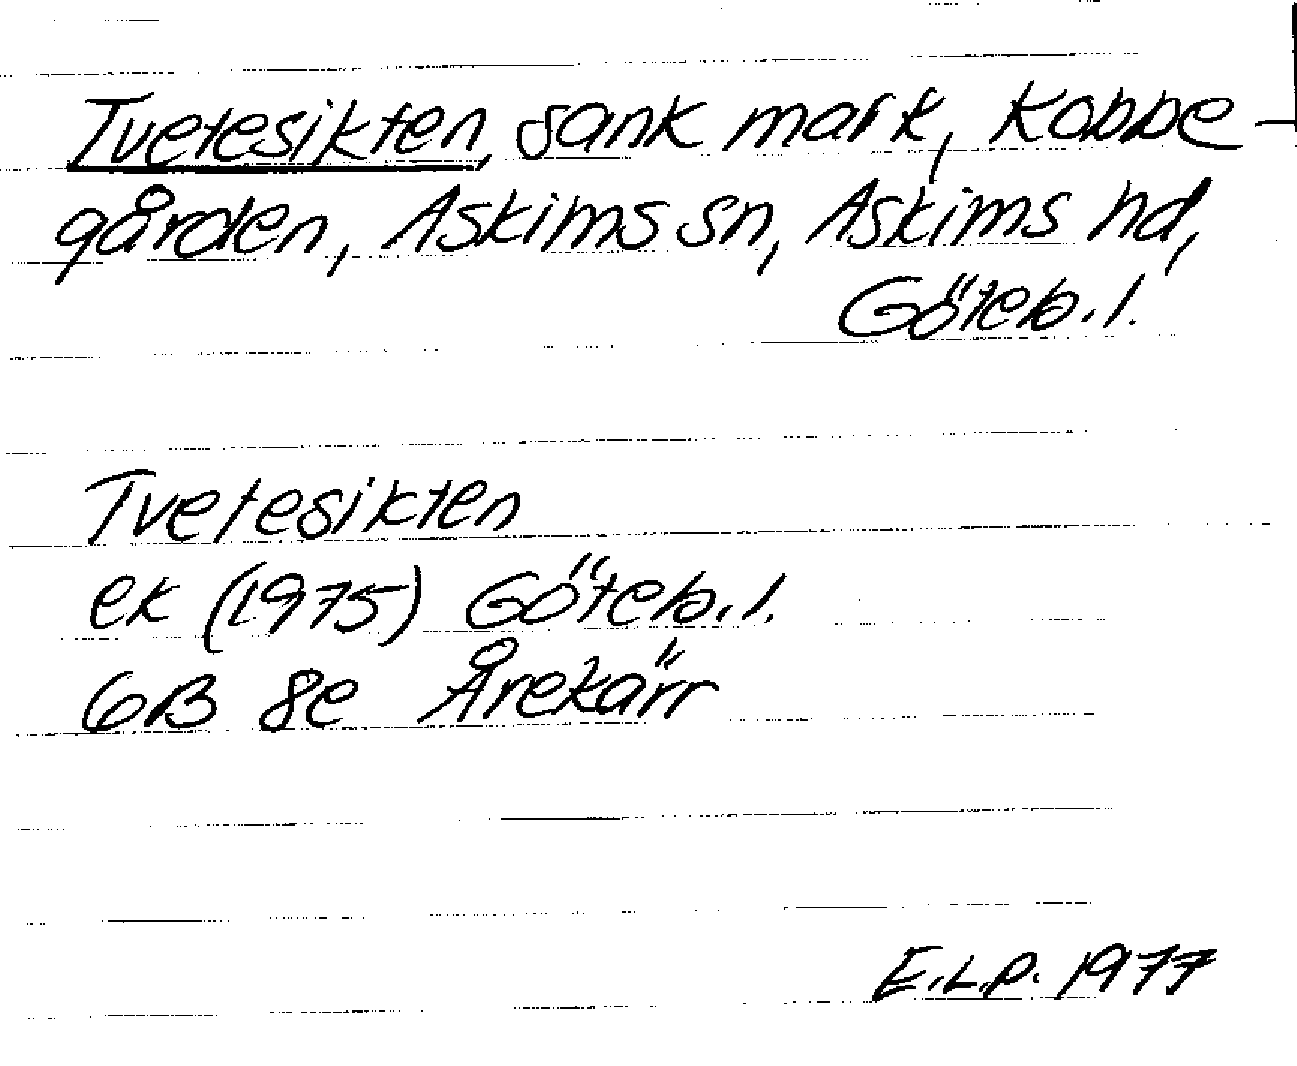 Tvetesikten, sank mark, Kobbe-
gården, Askims sn, Askims hd,
Göteb. l.
Tvetesikten
ek (1975) Göteb. l.
6B 8e Årekärr
E.L.P. 1977